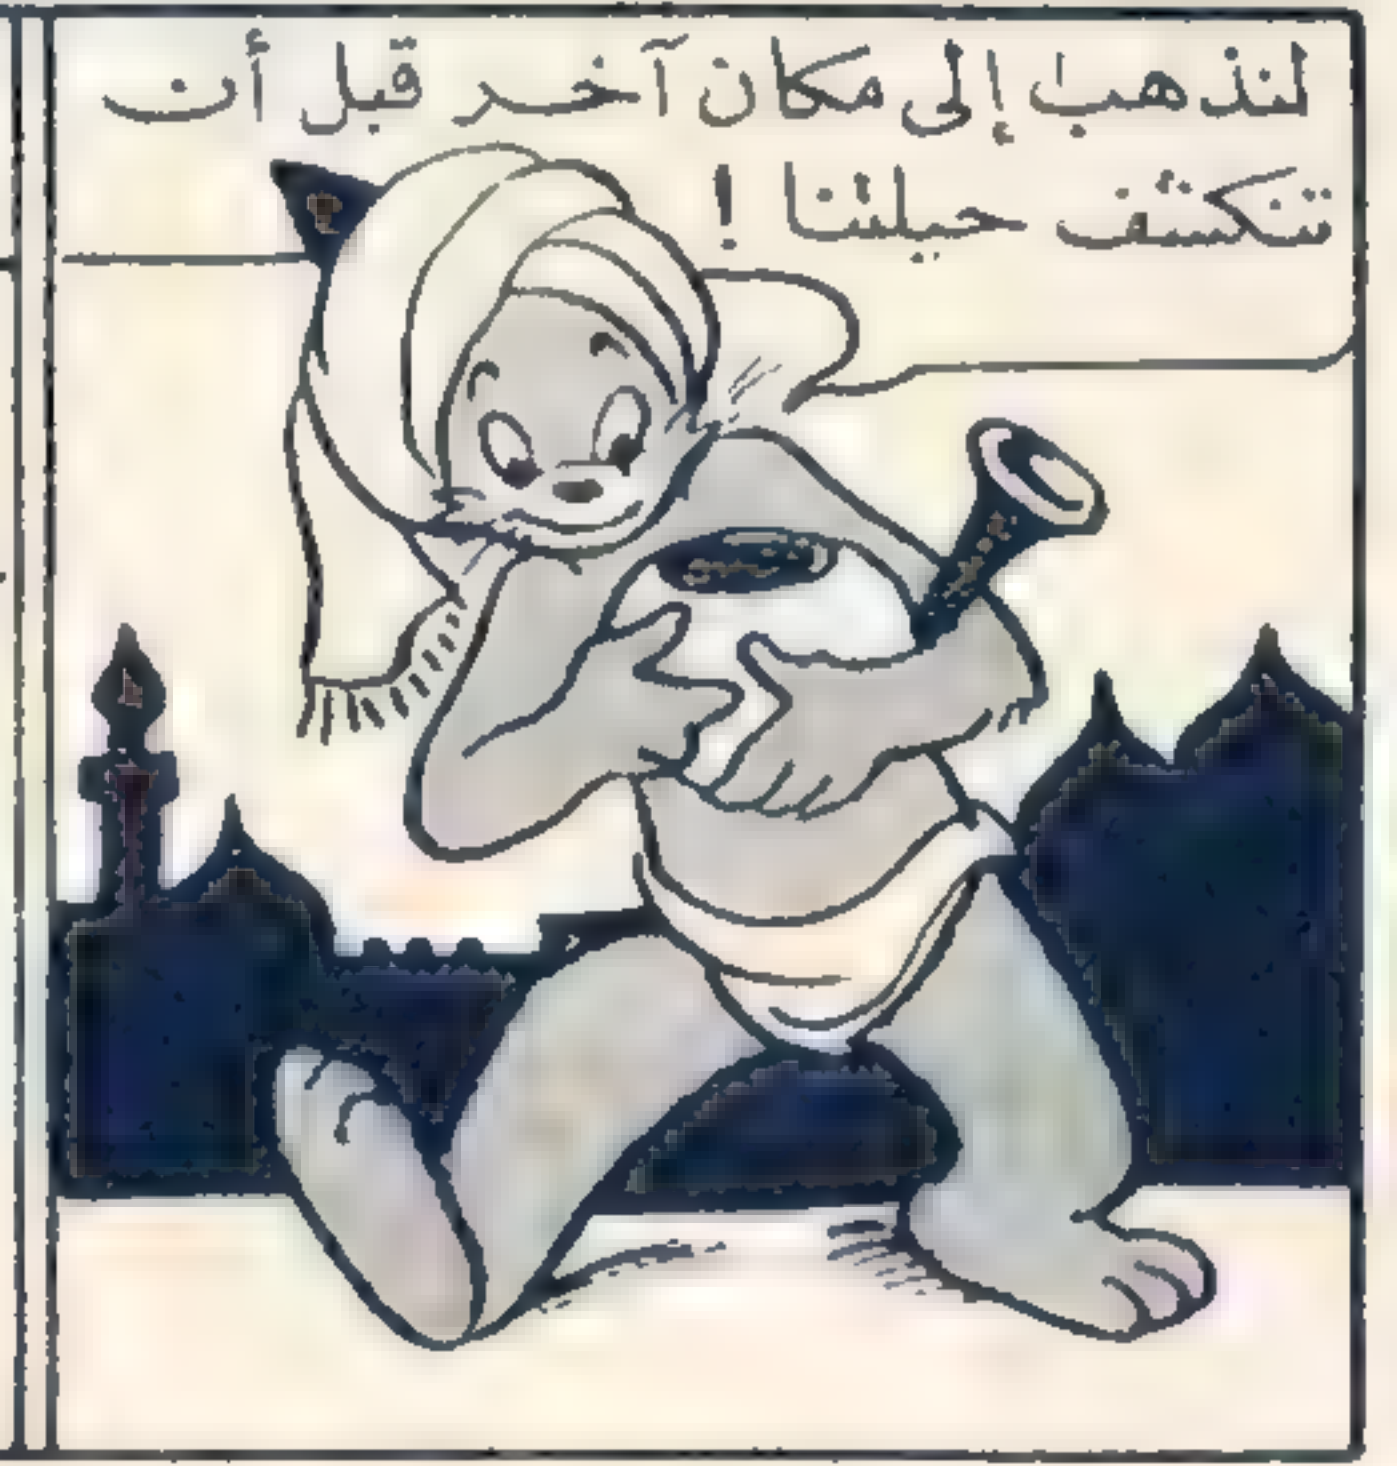 لنذهب إلى مكان آخر قبل أن
تنكشف حيلتنا !